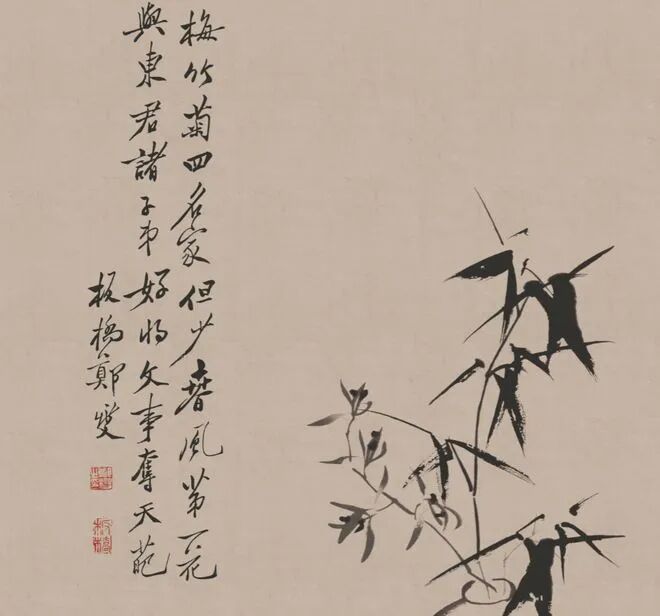 梅竹菊四名家但少春風第一花
與東君諸子弟好將文事奪天葩
板橋鄭燮